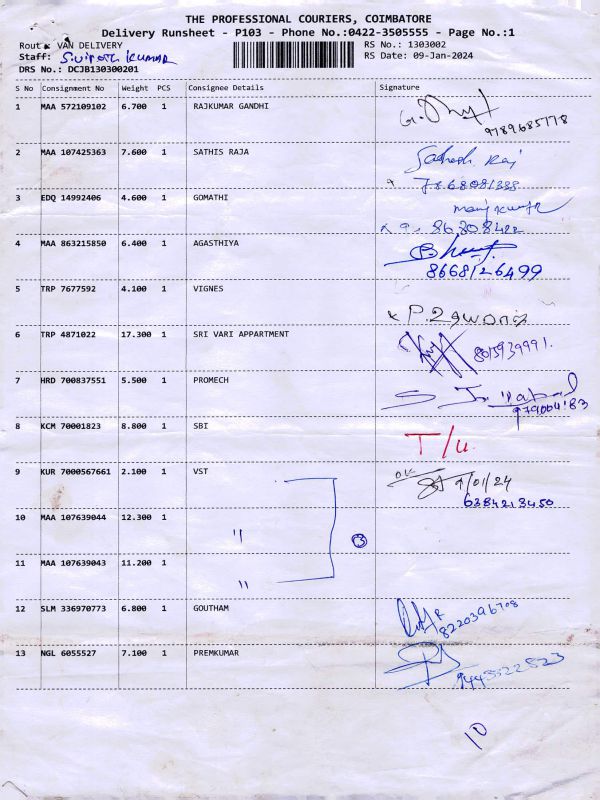 THE PROFESSIONAL COURIERS, COIMBATORE
Delivery Runsheet - P103 - Phone No.:0422-3505555 - Page No.:1
Route: VAN DELIVERY RS No.: 1303002
Staff: RS Date: 09-Jan-2024
DRS No.: DCJB130300201
S No Consignment No Weight PCS Consignee Details Signature
1 MAA 572109102 6.700 1 RAJKUMAR GANDHI
9789685778
2 MAA 107425363 7.600 1 SATHIS RAJA Sathish Raj
3 EDQ 14992406 4.600 1 GOMATHI
4 MAA 863215850 6.400 1 AGASTHIYA
8668126499
5 TRP 7677592 4.100 1 VIGNES
6 TRP 4871022 17.300 1 SRI VARI APPARTMENT 8015939991.
7 HRD 700837551 5.500 1 PROMECH
8 KCM 70001823 8.800 1 SBI T/U
9 KUR 7000567661 2.100 1 VST OK 9/01/24
6384213450
10 MAA 107639044 12.300 1 "
3
11 MAA 107639043 11.200 1
"
12 SLM 336970773 6.800 1 GOUTHAM
8220396708
13 NGL 6055527 7.100 1 PREMKUMAR
10